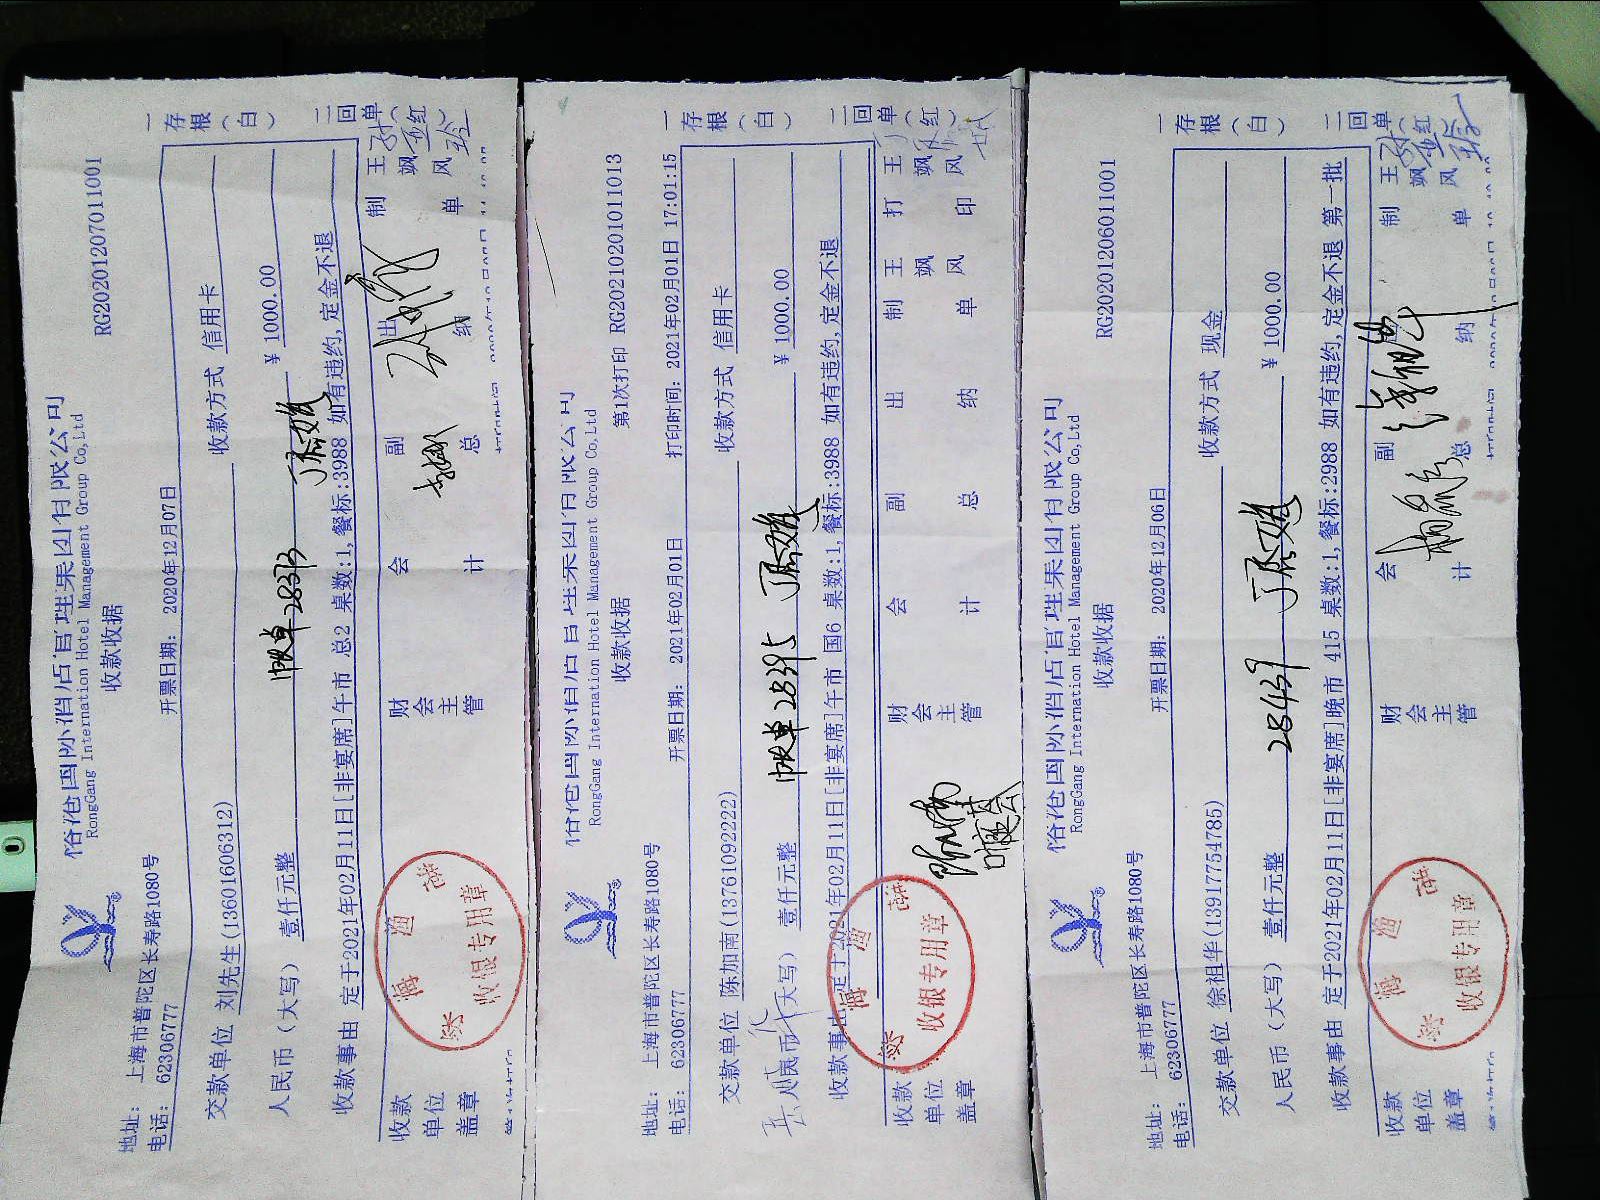 RongGang International Hotel Management Group Co,Ltd
收款收据
RG20201207011001
地址: 上海市普陀区长寿路1080号
电话: 62306777
开票日期: 2020年12月07日
交款单位 刘先生(13601606312) 收款方式 信用卡
人民币(大写) 壹仟元整 ¥ 1000.00
收款事由 定于2021年02月11日[非宴席]午市 总2 桌数:1,餐标:3988 如有违约,定金不退
收款单位盖章 财会主管 会计 副总 出纳 制单 王飒风
收银专用章
一存根(白) 二回单(红)
RongGang International Hotel Management Group Co,Ltd
收款收据
第1次打印 RG20210201011013
地址: 上海市普陀区长寿路1080号
电话: 62306777
开票日期: 2021年02月01日 打印时间: 2021年02月01日 17:01:15
交款单位 陈加南(13761092222) 收款方式 信用卡
人民币(大写) 壹仟元整 28395 ¥ 1000.00
收款事由 定于2021年02月11日[非宴席]午市 国6 桌数:1,餐标:3988 如有违约,定金不退
收款单位盖章 财会主管 会计 副总 出纳 制单 王飒风 打印 王飒风
收银专用章
一存根(白) 二回单(红)
RongGang International Hotel Management Group Co,Ltd
收款收据
RG20201206011001
地址: 上海市普陀区长寿路1080号
电话: 62306777
开票日期: 2020年12月06日
交款单位 徐祖华(13917754785) 收款方式 现金
人民币(大写) 壹仟元整 28439 ¥ 1000.00
收款事由 定于2021年02月11日[非宴席]晚市 415 桌数:1,餐标:2988 如有违约,定金不退 第一批
收款单位盖章 财会主管 会计 副总 出纳 制单 王飒风
收银专用章
一存根(白) 二回单(红)